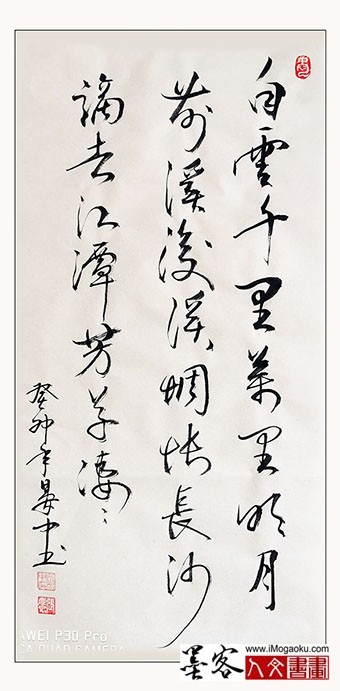 白雲千里萬里明月
前溪後溪惆悵長沙
謫去江潭芳草凄〻
癸卯年晏中书
AWEI P30 Pro
CA QUAD CAMERA
墨客 www.iMogaoku.com
人文書畫